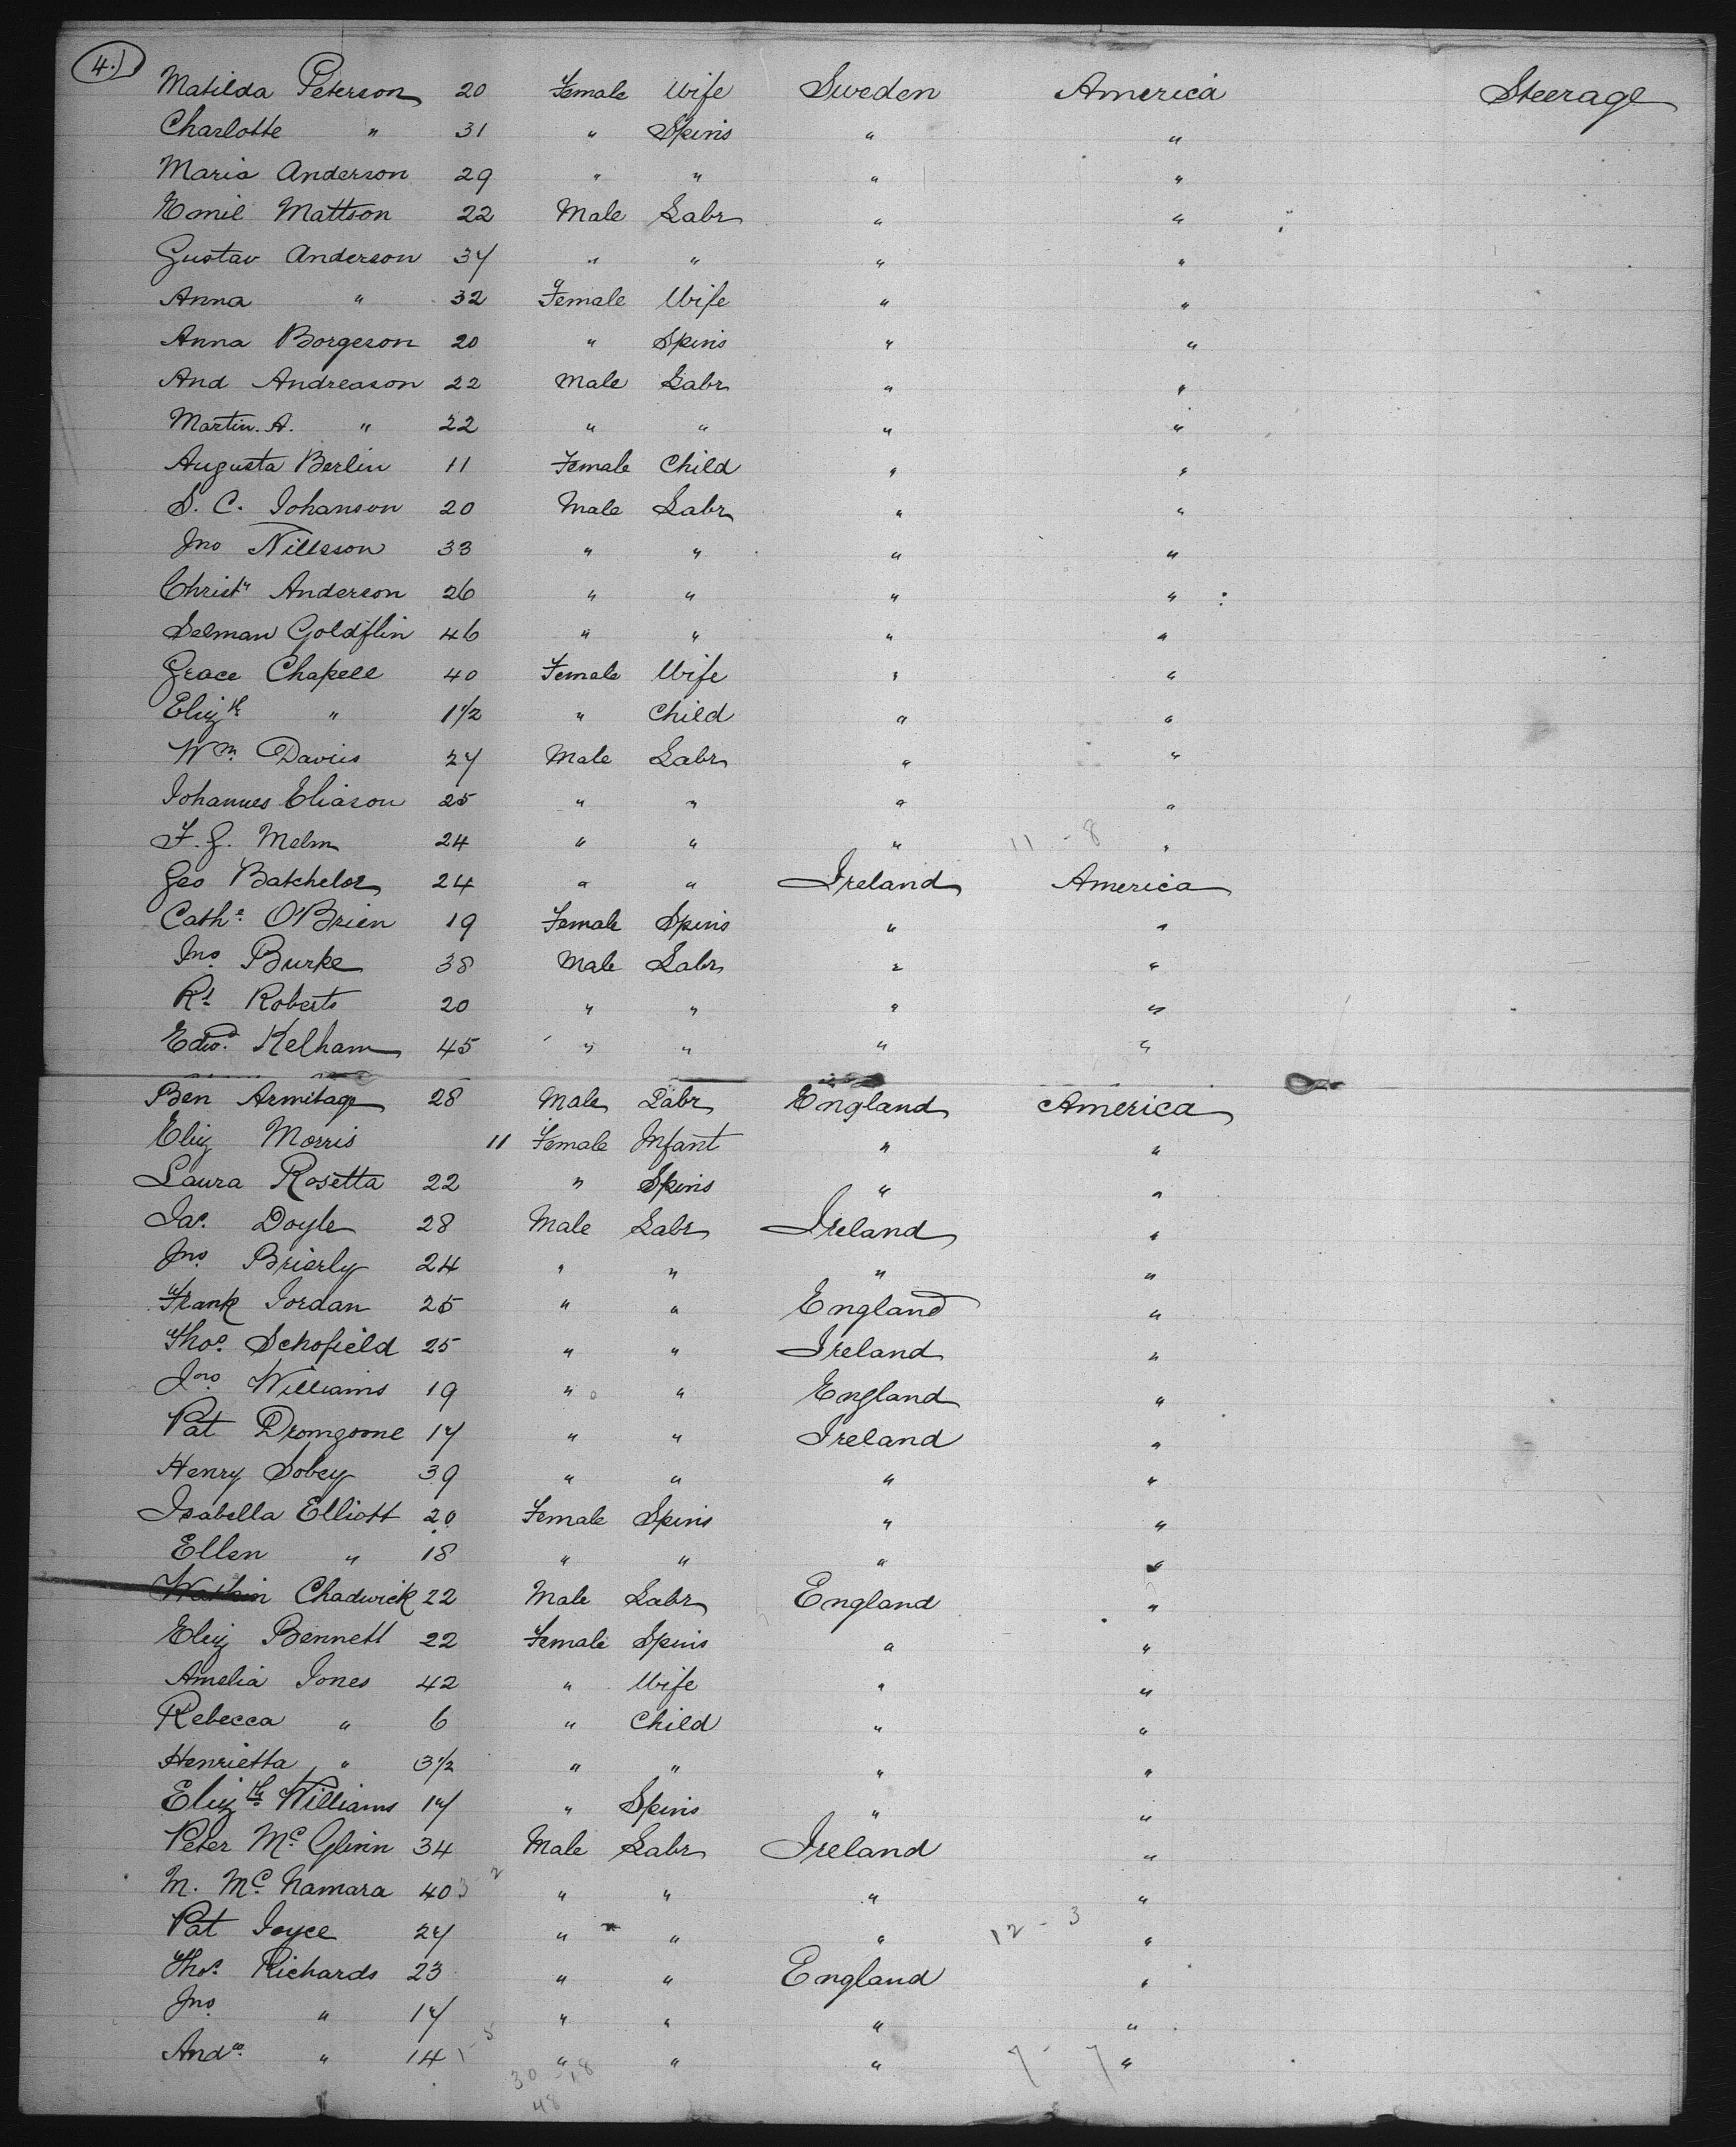 4.)
Matilda Peterson 20 Female Wife Sweden America Steerage
Charlotte " 31 " Spins " "
Maria Anderson 29 " " " "
Emil Mattson 22 Male Labr " "
Gustav Anderson 34 " " " "
Anna " 32 Female Wife " "
Anna Borgeson 20 " Spins " "
And Andreason 22 Male Labr " "
Martin. A. " 22 " " " "
Augusta Berlin 11 Female Child " "
S. C. Johanson 20 Male Labr " "
Jno Nillson 33 " " " "
Christn Anderson 26 " " " "
Selman Goldflin 46 " " " "
Grace Chapell 40 Female Wife " "
Elizth " 1 1/2 " Child " "
Wm. Davies 27 Male Labr " "
Johannes Eliason 25 " " " "
F. G. Melm 24 " " " 11 - 8 "
Geo Batchelor 24 " " Ireland America
Cathe. O'Brien 19 Female Spins " "
Jno. Burke 38 Male Labr " "
Rt. Roberts 20 " " " "
Edwd. Kelham 45 " " " "
Ben Armitage 28 Male Labr England America
Eliz Morris 11 Female Infant " "
Laura Rosetta 22 " Spins " "
Jas. Doyle 28 Male Labr Ireland "
Jno. Brierly 24 " " " "
Frank Jordan 25 " " England "
Thos. Schofield 25 " " Ireland "
Jno. Williams 19 " " England "
Pat Dromgoone 17 " " Ireland "
Henry Sobey 39 " " " "
Isabella Elliott 20 Female Spins " "
Ellen " 18 " " " "
Chadwick 22 Male Labr England "
Eliz Bennett 22 Female Spins " "
Amelia Jones 42 " Wife " "
Rebecca " 6 " Child " "
Henrietta " 3 1/2 " " " "
Elizth. Williams 17 " Spins " "
Peter Mc. Glinn 34 Male Labr Ireland "
M. Mc. Namara 40 " " " "
Pat Joyce 27 " " " 12 - 3 "
Thos. Richards 23 " " England "
Jno. " 17 " " " "
Andw. " 14 " " " 7 - 7 "
30 18
48